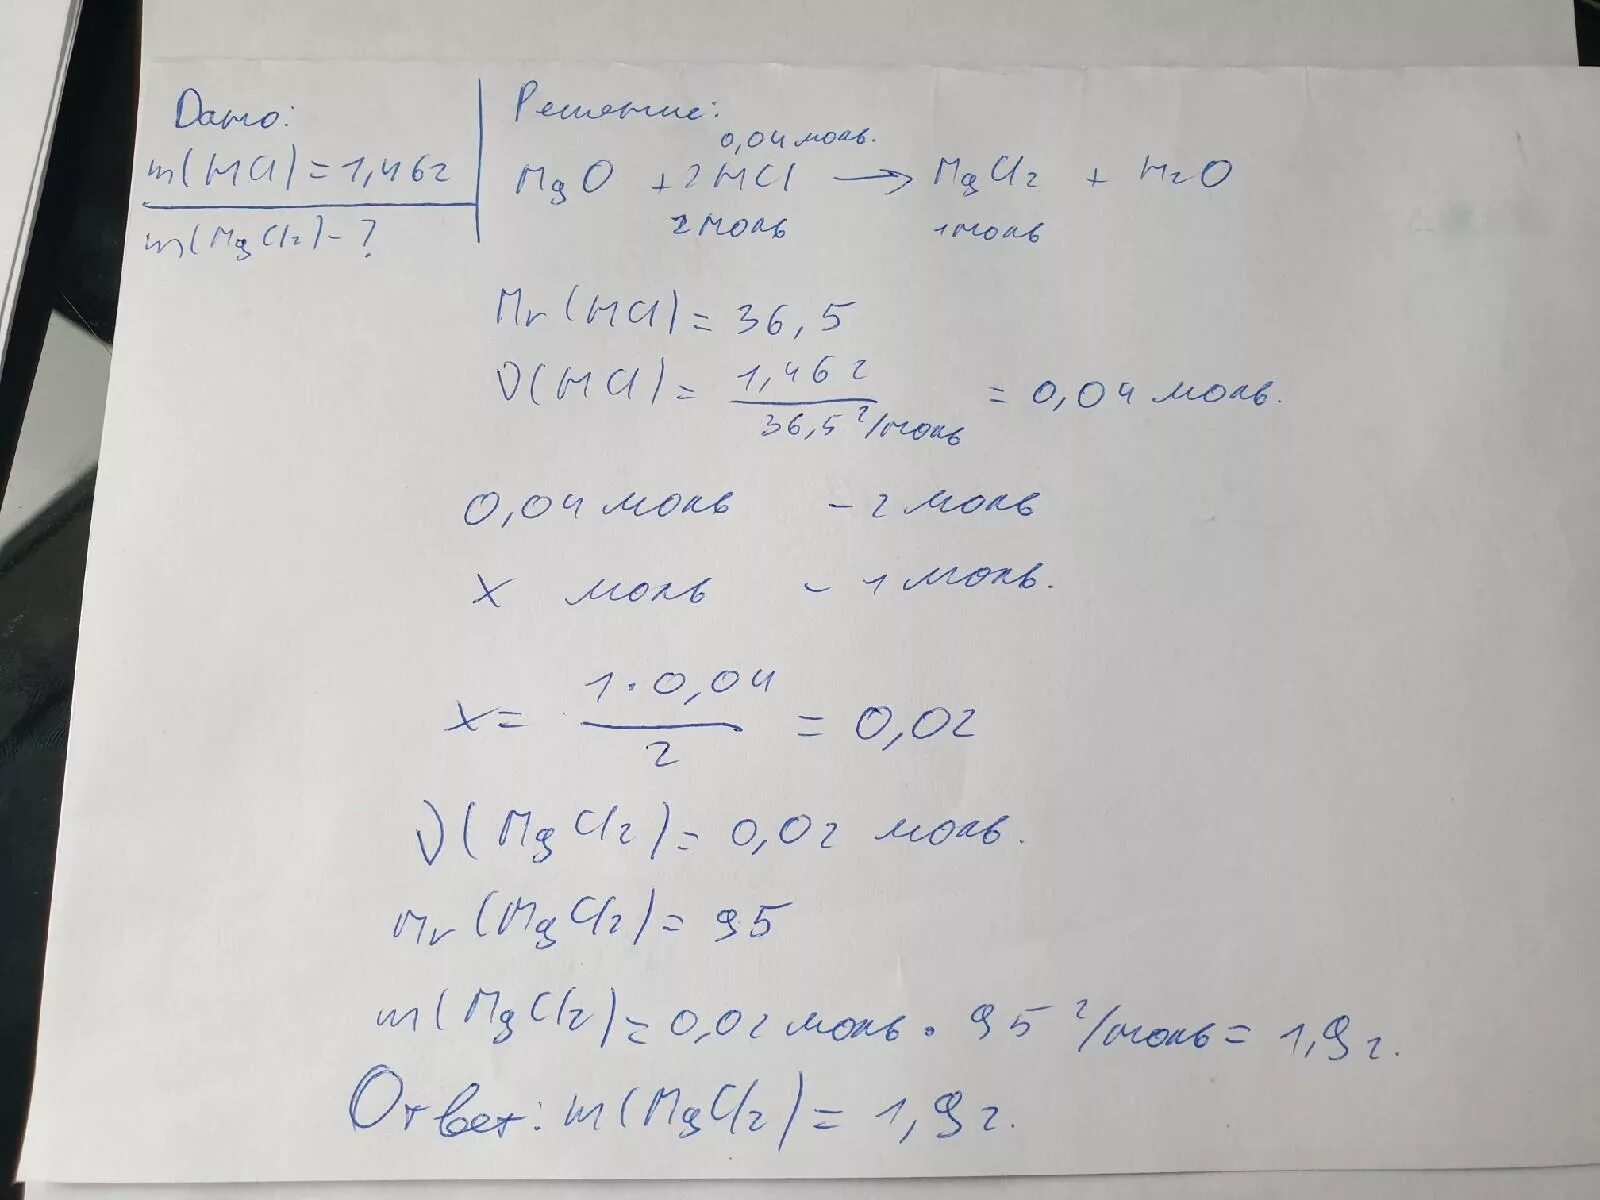 Дано:
m(HCl)=1,46г
m(MgCl2)-?
Решение:
0,04 моль.
MgO + 2HCl → MgCl2 + H2O
2 моль 1 моль
Mr(HCl)= 36,5
ν(HCl)= 1,46 г / 36,5 г/моль = 0,04 моль.
0,04 моль - 2 моль
x моль - 1 моль.
x= 1·0,04 / 2 = 0,02
ν(MgCl2)= 0,02 моль.
Mr(MgCl2)= 95
m(MgCl2)= 0,02 моль · 95 г/моль= 1,9 г.
Ответ: m(MgCl2)= 1,9 г.